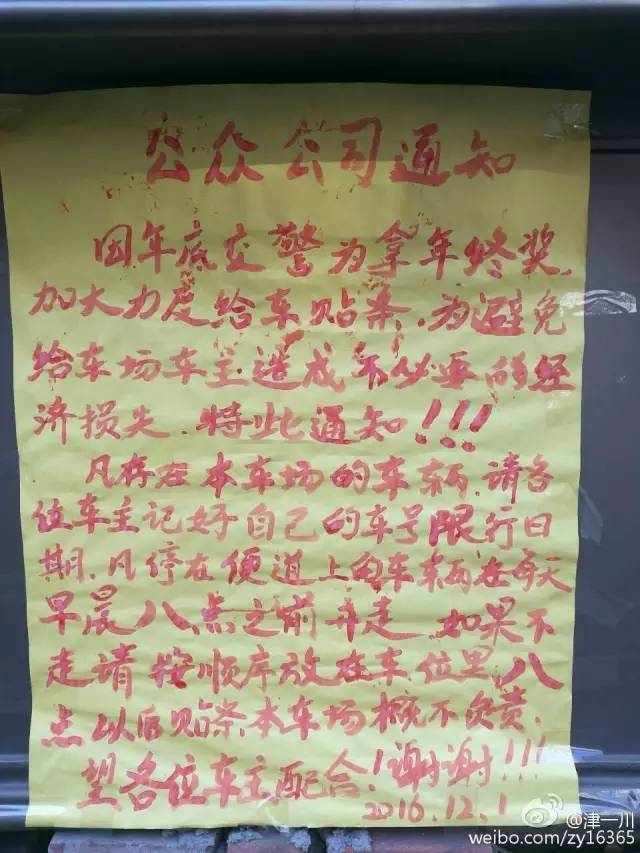 公众公司通知
因年底交警为拿年终奖,
加大力度给车贴条.为避免
给车场车主造成不必要的经
济损失.特此通知!!!
凡存在本车场的车辆.请各
位车主记好自己的车号限行日
期.凡停在便道上的车辆在每天
早晨八点之前开走.如果不
走请按顺序放在车位里.八
点以后贴条.本车场概不负责.
望各位车主配合!谢谢!!!
2016.12.1
@津一川
weibo.com/zy16365